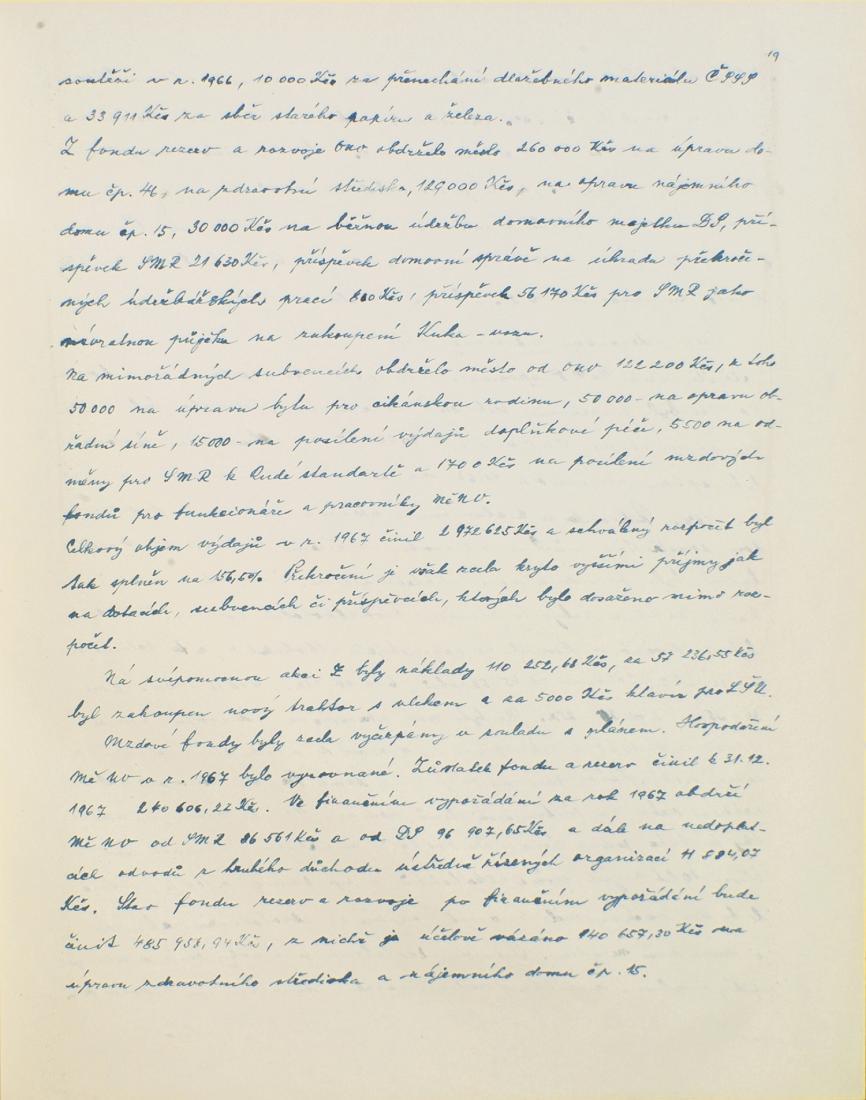 19
soutěži v r. 1966, 10 000 Kčs za přenechání dlažebného materiálu ČSSS
a 33 911 Kčs za sběr starého papíru a železa.
Z fondu rezerv a rozvoje ONV obdrželo město 260 000 Kčs na úpravu do-
mu čp. 46, na zdravotní středisko, 129 000 Kčs, na opravu nájemního
domu čp. 15, 30 000 Kčs na běžnou údržbu domovního majetku DS, pří-
spěvek SMR 21 630 Kčs, příspěvek domovní správě na úhradu překroče-
ných údržbářských prací 800 Kčs, příspěvek 56 170 Kčs pro SMR jako
návratnou půjčku na zakoupení Kuka-vozu.
Na mimořádných subvencích obdrželo město od ONV 122 200 Kčs, z toho
50 000 na úpravu bytu pro cikánskou rodinu, 50 000- na opravu ob-
řadní síně, 15 000- na posílení výdajů doplňkové péče, 5 500 na od-
měny pro SMR k Rudé standartě a 1700 Kčs na posílení mzdových
fondů pro funkcionáře a pracovníky MěNV.
Celkový objem výdajů v r. 1967 činil 2 972 625 Kčs a schválený rozpočet byl
tak splněn na 156,5%. Překročení je však zcela kryto vyššími příjmy jak
na dotacích, subvencích či příspěvcích, kterých bylo dosaženo mimo roz-
počet.
Na svépomocnou akci Z byly náklady 110 252,68 Kčs, za 57 236,55 Kčs
byl zakoupen nový traktor s vlekem a za 5000 Kčs klavír pro LŠU.
Mzdové fondy byly zcela vyčerpány v souladu s plánem. Hospodaření
MěNV v r. 1967 bylo vyrovnané. Zůstatek fondu a rezerv činil k 31.12.
1967 240 606,22 Kčs. Ve finančním vypořádání za rok 1967 obdrží
MěNV od SMR 86 561 Kčs a od DS 96 907,65 Kčs a dále na nedoplat-
cích odvodů z hrubého důchodu ústředně řízených organizací 11 884,07
Kčs. Stav fondu rezerv a rozvoje po finančním vypořádání bude
činit 485 958,94 Kčs, z nichž je účelově vázáno 140 657,30 Kčs na
úpravu zdravotního střediska a nájemního domu čp. 15.